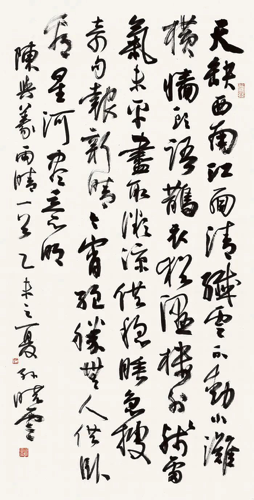 天缺西南江面清纖雲不動小灘
橫牆頭語鵲衣猶濕樓外殘雷
氣未平盡取微涼供穩睡急搜
奇句報新晴今宵絕勝無人供臥
看星河盡意明
陳與義雨晴一首乙未之夏孫曉雲